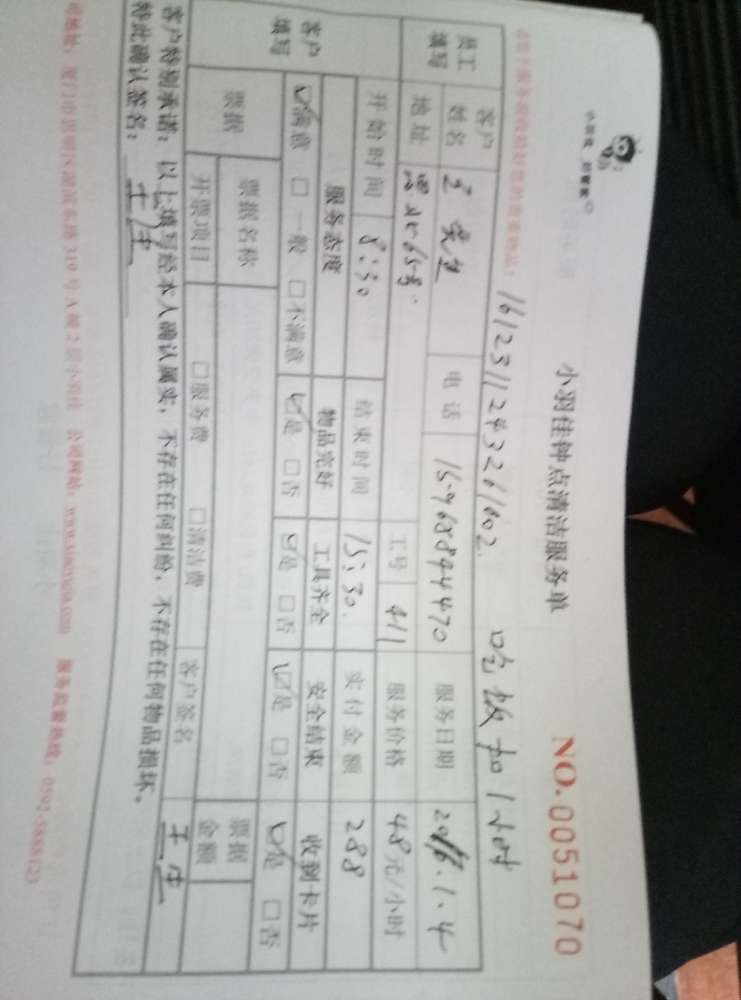 小羽佳钟点清洁服务单
NO.0051070
1612311243261602. 吃饭扣1小时
员工填写 客户姓名 王先生 电话 15968944470 服务日期 2016.1.4
地址 65号 工号 411 服务价格 48元/小时
开始时间 8:30 结束时间 15:30. 实付金额 288
客户填写 服务态度 物品完好 工具齐全 安全结束 收到卡片
☑满意 □一般 □不满意 ☑是 □否 ☑是 □否 ☑是 □否 ☑是 □否
票据 票据名称 票据金额
开票项目 □服务费 □清洁费 客户签名
客户特别承诺:以上填写经本人确认属实,不存在任何纠纷,不存在任何物品损坏。
特此确认签名:
司地址:厦门市思明区湖滨东路319号A幢2层小羽佳 公司网站:www.xiaoyujia.com 服务监督热线:0592-5888123